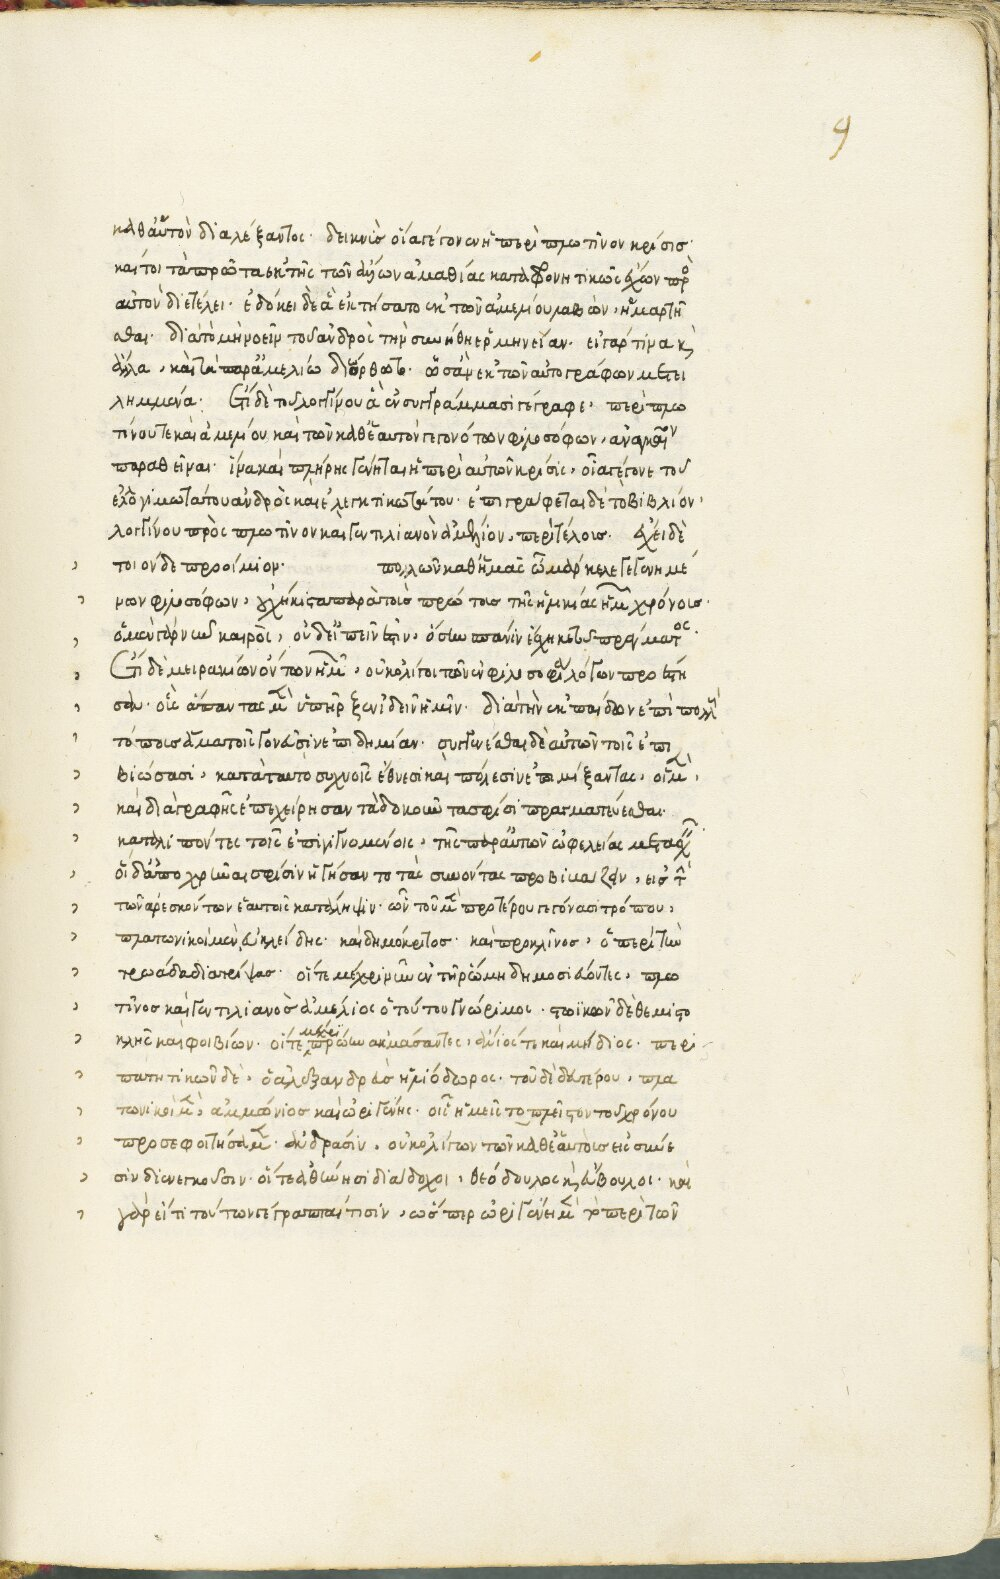 9
καθ' αὑτὸν διαλέξαντος· δεικνὺς οἵα γέγονεν ἡ περὶ πλωτῖνον κρίσις·
καίτοι τὰ πρῶτα ἐκ τῆς τῶν ἄλλων ἀμαθίας καταφρονητικῶς ἔχων πρὸς
αὐτὸν διετέλει· ἐδόκει δὲ ἃ ἐκτήσατο ἐκ τῶν ἀμελίου λαβών, ἡμαρτῆ
σθαι· διὰ τὸ μὴ νοεῖν τοῦ ἀνδρὸς τὴν συνήθη ἑρμηνείαν· εἰ γάρ τινα κ(αὶ)
ἄλλα, καὶ τὰ παρ' ἀμελίω διώρθωτο· ὡς ἂν ἐκ τῶν αὐτογράφων μετει
λημμένα· ἔτι δὲ τοῦ λογγίνου ἃ ἐν συγγράμμασι γέγραφε, περὶ πλω
τίνου τε καὶ ἀμελίου καὶ τῶν καθ' ἑαυτὸν γεγονότων φιλοσόφων, ἀναγκαῖον
παραθεῖναι· ἵνα καὶ πλήρης γένηται ἡ περὶ αὐτῶν κρίσις, οἵα γέγονε τοῦ
ἐλλογιμωτάτου ἀνδρὸς καὶ ἐλεγκτικωτάτου· ἐπιγράφεται δὲ τὸ βιβλίον,
λογγίνου πρὸς πλωτῖνον καὶ γεντιλιανὸν ἀμέλιον, περὶ τέλους· ἔχει δὲ
τοιόνδε προοίμιον· πολλῶν καθ' ἡμᾶς ὦ μάρκελλε γεγενημέ
νων φιλοσόφων, οὐχ ἥκιστα παρὰ τοῖς πρώτοις τῆς ἡλικίας ἡμῶν χρόνοις·
ὁ μὲν γὰρ νῦν καιρὸς, οὐδ' εἰπεῖν ἔστιν, ὅσην σπάνιν ἔσχηκε τοῦ πράγματος·
ἔτι δὲ μειρακίων ὄντων ἡμῶν, οὐκ ὀλίγοι τῶν ἐν φιλοσοφία λόγων προέστη
σαν· οὓς ἅπαντας μὲν ὑπῆρξεν ἰδεῖν ἡμῖν· διὰ τὴν ἐκ παίδων ἐπὶ πολλοὺς
τόπους ἅμα τοῖς γονεῦσιν ἐπιδημίαν· συγγενέσθαι δὲ αὐτῶν τοῖς ἐπι
βιώσασι, κατὰ ταυτὸ συχνοῖς ἔθνεσι καὶ πόλεσιν ἐπιμίξαντας, οἱ μὲν,
καὶ διὰ γραφῆς ἐπεχείρησαν τὰ δοκοῦντα σφίσι πραγματεύεσθαι·
καταλιπόντες τοῖς ἐπιγιγνομένοις, τῆς παρ' αὐτῶν ὠφελείας μετασχεῖν·
οἱ δ' ἀποχρῶναι σφίσιν ἡγήσαντο τοὺς συνόντας προβιβάζειν, εἰς τὴν
τῶν ἀρεσκόντων ἑαυτοῖς κατάληψιν· ὧν τοῦ μὲν προτέρου γεγόνασι τρόπου,
πλατωνικοὶ μὲν, εὐκλείδης· καὶ δημόκριτος· καὶ προκλῖνος, ὁ περὶ τὴν
τρωάδα διατρίψας· οἵ τε μέχρι νῦν ἐν τῆ ῥώμη δημοσιεύοντες, πλω
τῖνος καὶ γεντιλιανὸς ἀμέλιος ὁ τούτου γνώριμος· στωϊκῶν δὲ θεμιστο
κλῆς καὶ φοιβίων· οἵ τε μέχρι πρώην ἀκμάσαντες, ἄννιός τε καὶ μήδιος· περι
πατητικῶν δὲ, ὁ ἀλεξανδρεὺς ἡλιόδωρος· τοῦ δὲ δευτέρου, πλα
τωνικοὶ μὲν, ἀμμώνιος καὶ ὠριγένης· οἷς ἡμεῖς τὸ πλεῖστον τοῦ χρόνου
προσεφοιτήσαμεν· ἀνδράσιν, οὐκ ὀλίγω τῶν καθ' ἑαυτοὺς εἰς σύνε
σιν διενεγκοῦσιν· οἵ τε ἀθήνησι διάδοχοι, θεόδοτος κ(αὶ) εὔβουλος· καὶ
γὰρ εἴ τι τούτων γέγραπταί τισιν, ὥσπερ ὠριγένει μὲν τὸ περὶ τῶν